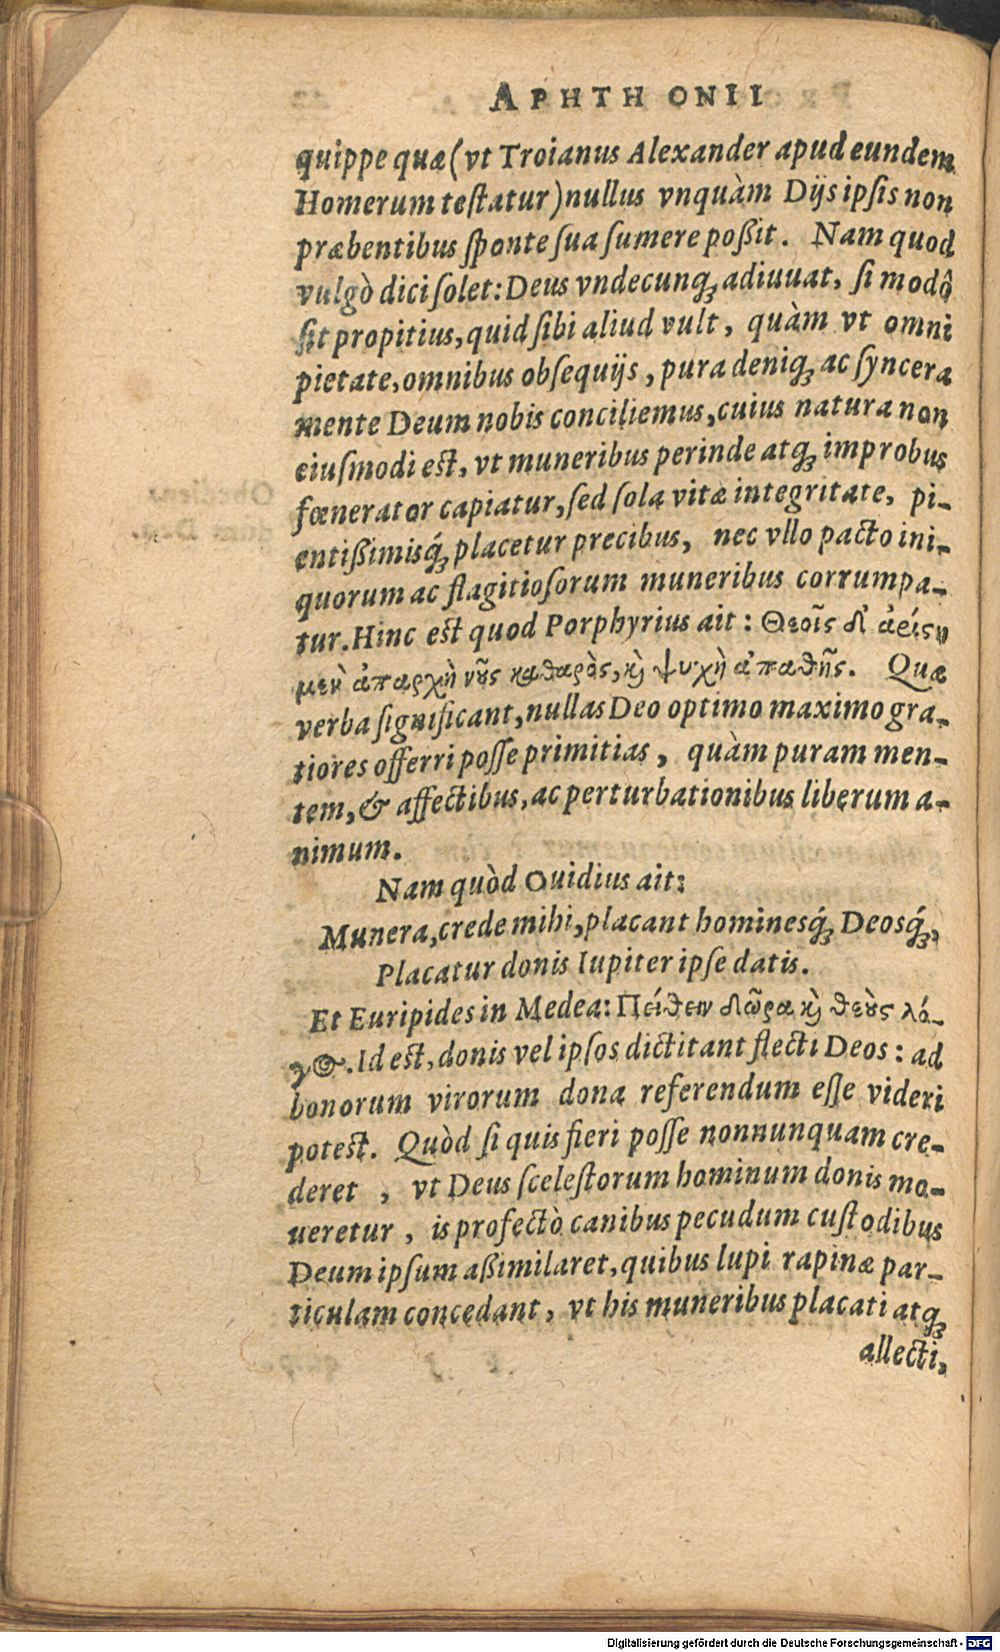 APHTHONII
quippe quæ (vt Troianus Alexander apud eundem
Homerum testatur) nullus vnquàm Dijs ipsis non
præbentibus sponte sua sumere poßit. Nam quod
vulgò dici solet: Deus vndecunq; adiuuat, si modò
sit propitius, quid sibi aliud vult, quàm vt omni
pietate, omnibus obsequijs, pura deniq; ac syncera
mente Deum nobis conciliemus, cuius natura non
eiusmodi est, vt muneribus perinde atq; improbus
fœnerator capiatur, sed sola vitæ integritate, pi-
entißimisq́; placetur precibus, nec vllo pacto ini-
quorum ac flagitiosorum muneribus corrumpa-
tur. Hinc est quod Porphyrius ait: Θεοῖς δ' ἀρίςη
μὲν ἀπαρχὴ νοῦς καθαρὸς, καὶ ψυχὴ ἀπαθὴς. Quæ
verba significant, nullas Deo optimo maximo gra-
tiores offerri posse primitias, quàm puram men-
tem, & affectibus, ac perturbationibus liberum a-
nimum.
Nam quòd Ouidius ait:
Munera, crede mihi, placant hominesq́; Deosq́;,
Placatur donis Iupiter ipse datis.
Et Euripides in Medea: Πείθειν δῶρα καὶ θεοὺς λό-
γος. Id est, donis vel ipsos dictitant flecti Deos: ad
bonorum virorum dona referendum esse videri
potest. Quòd si quis fieri posse nonnunquam cre-
deret, vt Deus scelestorum hominum donis mo-
ueretur, is profectò canibus pecudum custodibus
Deum ipsum aßimilaret, quibus lupi rapinæ par-
ticulam concedant, vt his muneribus placati atq;
allecti,
Digitalisierung gefördert durch die Deutsche Forschungsgemeinschaft - DFG